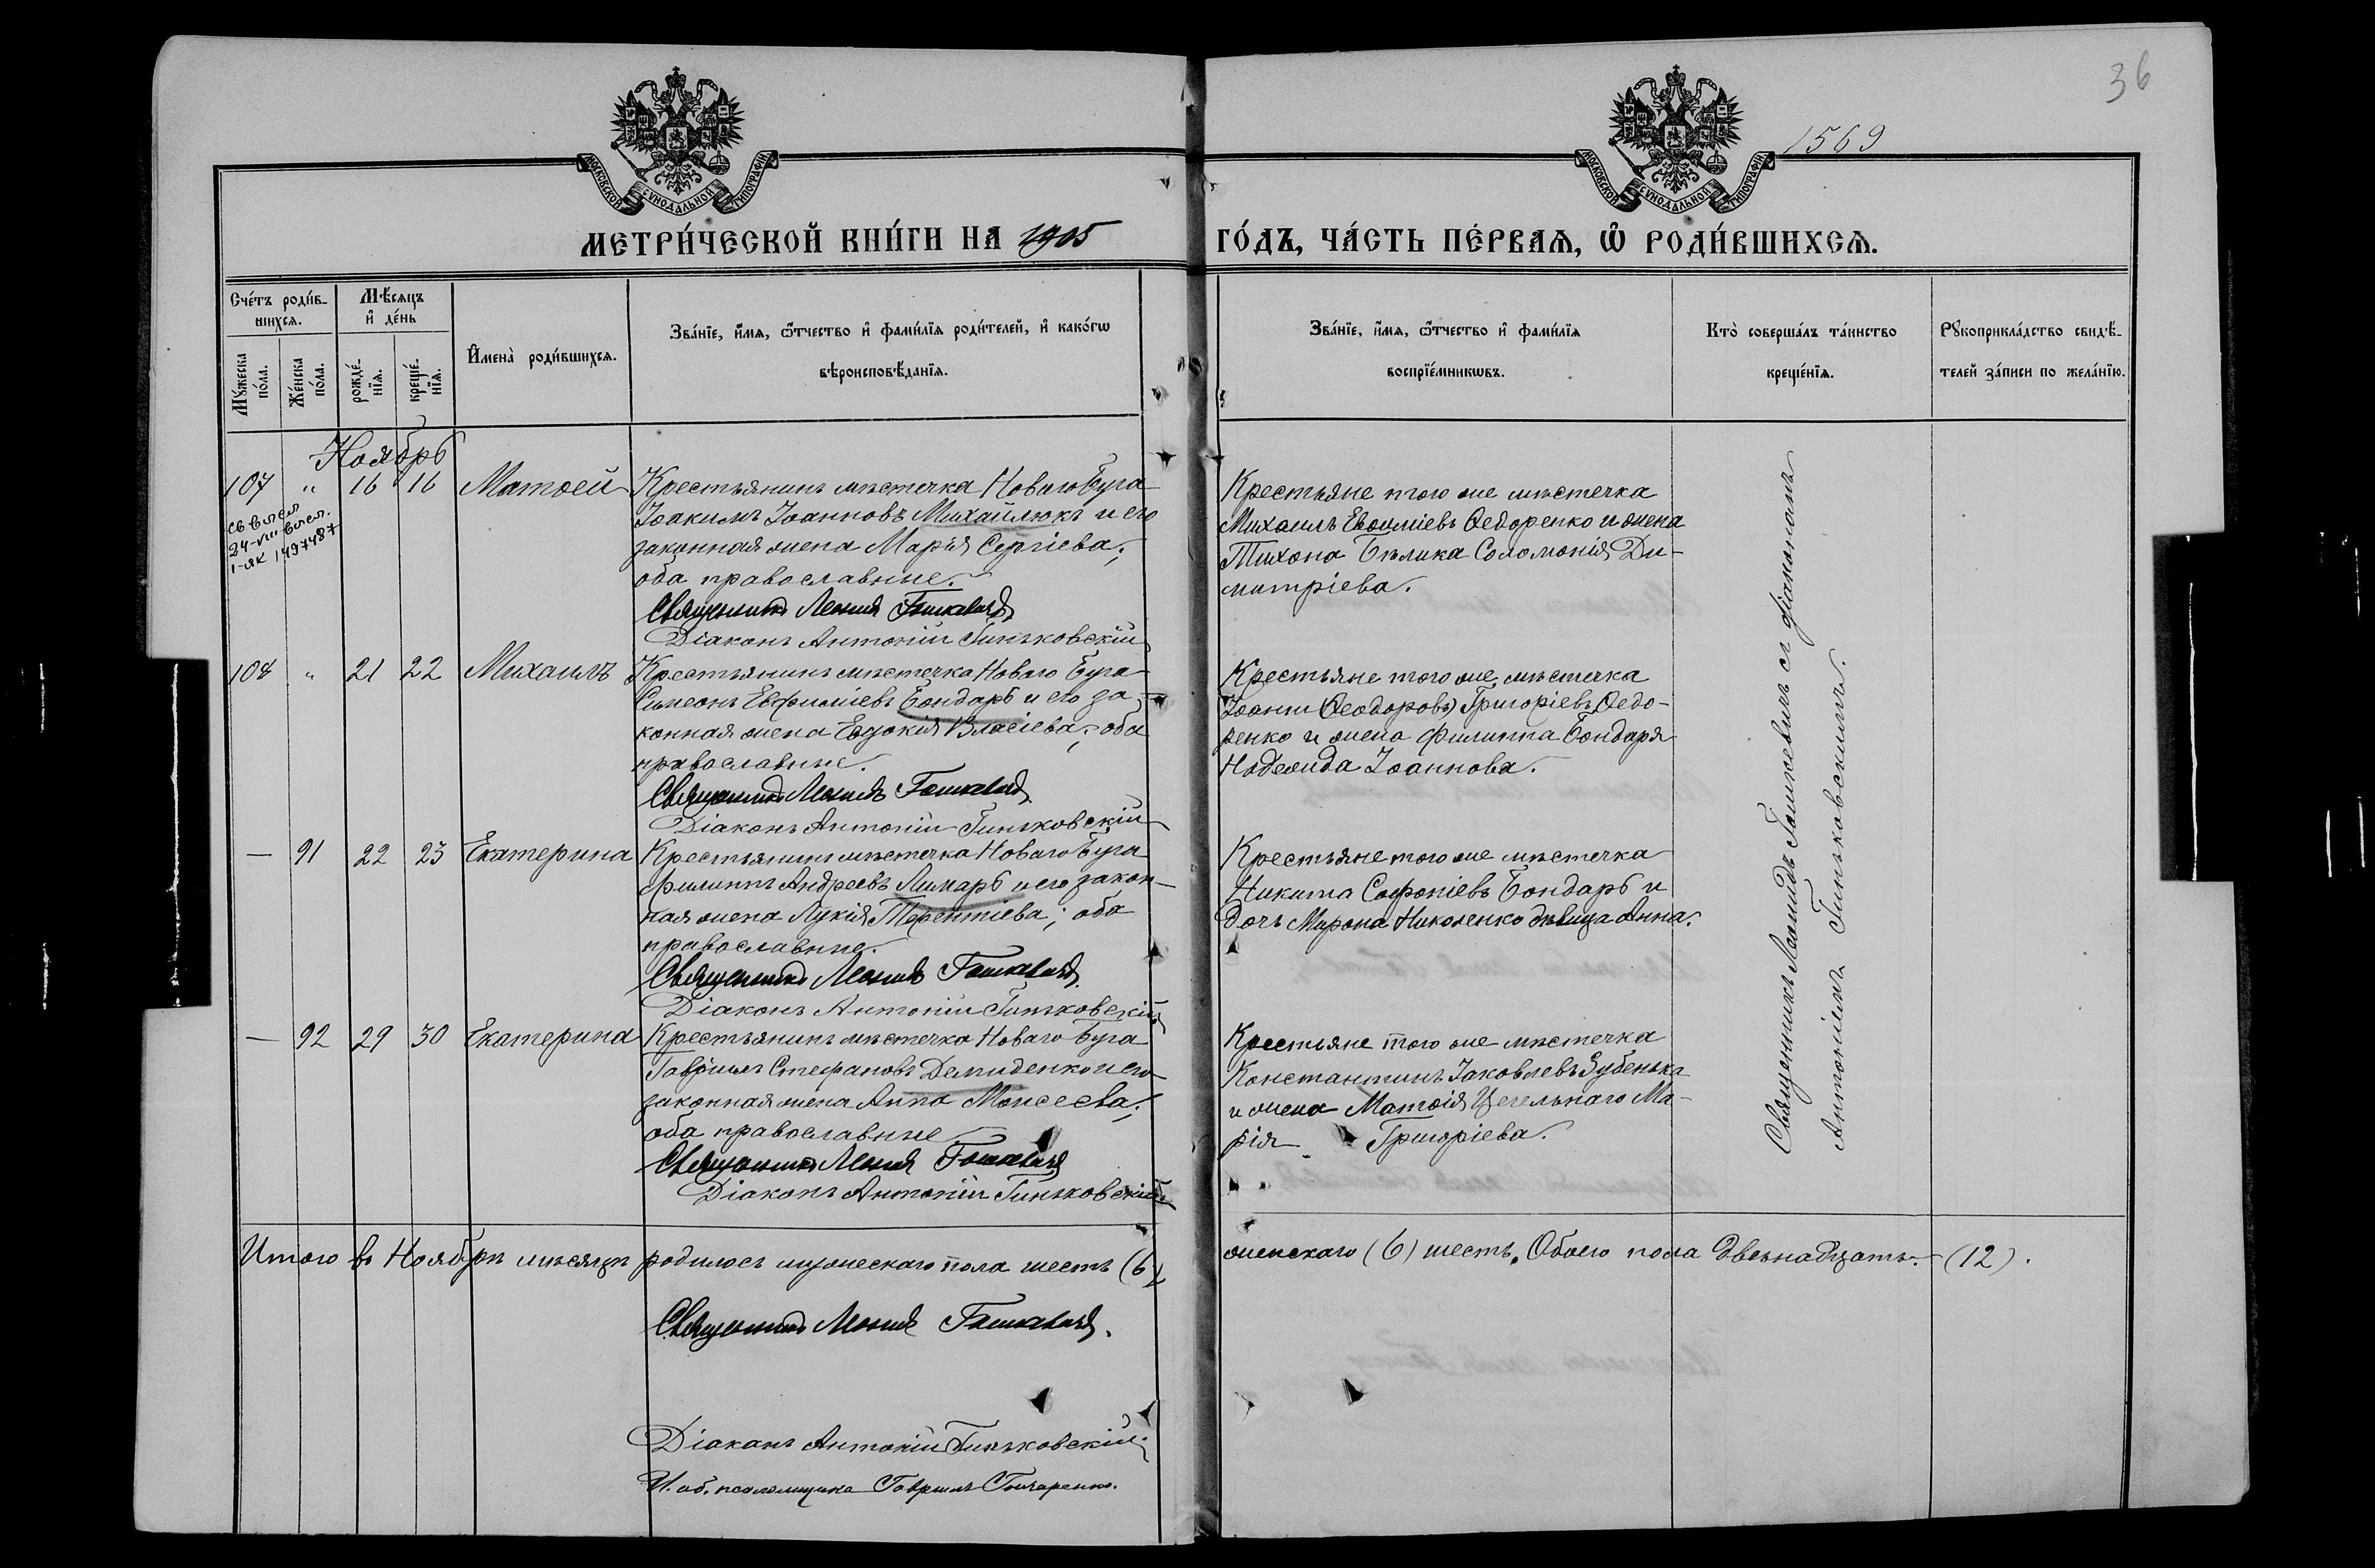 36
1569
МОСКОВСКОЙ СУНОДАЛЬНОЙ ТИПОГРАФІИ
МОСКОВСКОЙ СУНОДАЛЬНОЙ ТИПОГРАФІИ
МЕТРИ́ЧЕСКОЙ КНИ́ГИ НА 1905
ГО́ДЪ, ЧА́СТЬ ПЕ́РВАѦ, Ѡ РОДИ́ВШИХСѦ.
Сче́тъ роди́в-
шихсѧ.
Мѣ́сѧцъ
и де́нь
Мꙋ́жеска
по́ла.
Же́нска
по́ла.
рожде́-
нїѧ.
креще́-
нїѧ.
Имена̀ роди́вшихсѧ.
Зва́нїе, и́мѧ, ѻ҆́тчество и фами́лїѧ роди́телей, и како́гѡ
вѣроисповѣ́данїѧ.
Зва́нїе, и́мѧ, ѻ҆́тчество и фами́лїѧ
воспрїе́мникѡвъ.
Кто̀ соверша́лъ та́инство
креще́нїѧ.
Рꙋкоприкла́дство свидѣ́-
телей за́писи по жела́нїю.
Ноябрь
107 " 16 16 Матѳей
24-VIII
1-ЯК 1497487
Крестьянинъ мѣстечка Новаго Буга
Іоакимъ Іоанновъ Михайлюкъ и его
законная жена Марія Сергіева;
оба православные.
Священникъ Леонидъ Гошкевичъ
Діаконъ Антоній Гиньковскій
Крестьяне того же мѣстечка
Михаилъ Евѳиміевъ Ѳедоренко и жена
Тихона Бѣлика Соломонія Ди-
митріева.
108 " 21 22 Михаилъ
Крестьянинъ мѣстечка Новаго Буга
Симеонъ Евфиміевъ Бондарь и его за-
конная жена Евдокія Власіева; оба
православные.
Священникъ Леонидъ Гошкевичъ
Діаконъ Антоній Гиньковскій
Крестьяне того же мѣстечка
Іоаннъ (Ѳеодоровъ) Григоріевъ Ѳедо-
ренко и жена Филиппа Бондаря
Надежда Іоаннова.
— 91 22 23 Екатерина
Крестьянинъ мѣстечка Новаго Буга
Филиппъ Андреевъ Лимарь и его закон-
ная жена Лукія Терентіева; оба
православные.
Священникъ Леонидъ Гошкевичъ
Діаконъ Антоній Гиньковскій
Крестьяне того же мѣстечка
Никита Софоніевъ Бондарь и
дочь Мирона Николенко дѣвица Анна.
— 92 29 30 Екатерина
Крестьянинъ мѣстечка Новаго Буга
Гавріилъ Стефановъ Демиденко и его
законная жена Анна Моисеева;
оба православные
Священникъ Леонидъ Гошкевичъ
Діаконъ Антоній Гиньковскій
Крестьяне того же мѣстечка
Константинъ Іаковлевъ Зубенька
и жена Матѳія Цегельнаго Ма-
рія Григоріева.
Священникъ Леонидъ Гошкевичъ съ діакономъ
Антоніемъ Гиньковскимъ.
Итого въ Ноябрѣ мѣсяцѣ родилось мужескаго пола шесть (6)
женскаго (6) шесть. Обоего пола двѣнадцать. — (12).
Священникъ Леонидъ Гошкевичъ.
Діаконъ Антоній Гиньковскій
И. об. псаломщика Гавріилъ Гончаренко.